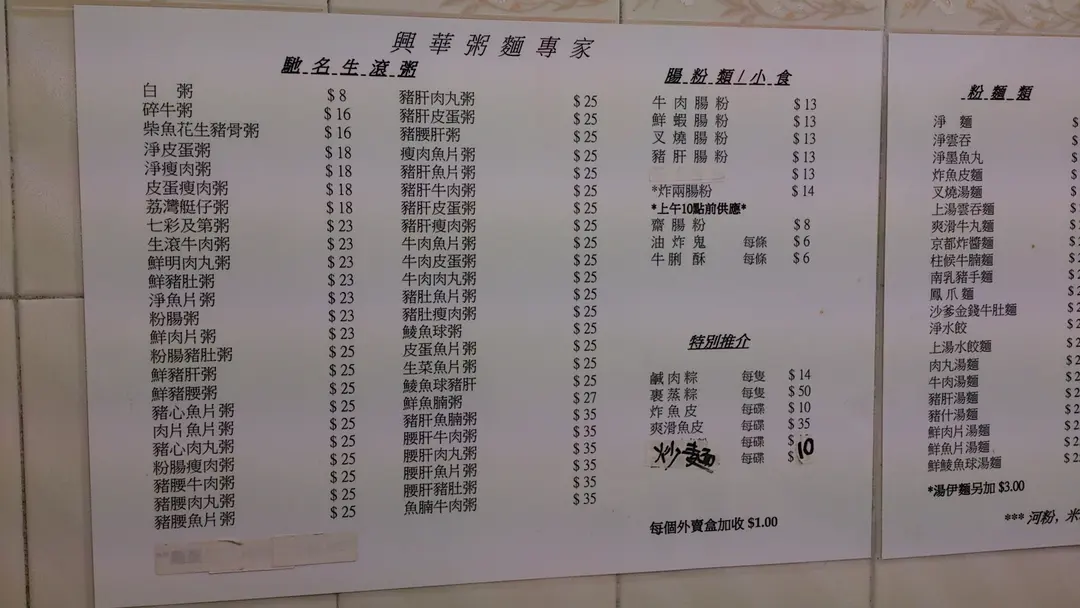 興華粥麵專家
馳名生滾粥
白 粥 $8
碎牛粥 $16
柴魚花生豬骨粥 $16
淨皮蛋粥 $18
淨瘦肉粥 $18
皮蛋瘦肉粥 $18
荔灣艇仔粥 $18
七彩及第粥 $23
生滾牛肉粥 $23
鮮明肉丸粥 $23
鮮豬肚粥 $23
淨魚片粥 $23
粉腸粥 $23
鮮肉片粥 $23
粉腸豬肚粥 $25
鮮豬肝粥 $25
鮮豬腰粥 $25
豬心魚片粥 $25
肉片魚片粥 $25
豬心肉丸粥 $25
粉腸瘦肉粥 $25
豬腰牛肉粥 $25
豬腰肉丸粥 $25
豬腰魚片粥 $25
豬肝肉丸粥 $25
豬肝皮蛋粥 $25
豬腰肝粥 $25
瘦肉魚片粥 $25
豬肝魚片粥 $25
豬肝牛肉粥 $25
豬肝皮蛋粥 $25
豬肝瘦肉粥 $25
牛肉魚片粥 $25
牛肉皮蛋粥 $25
牛肉肉丸粥 $25
豬肚魚片粥 $25
豬肚瘦肉粥 $25
鯪魚球粥 $25
皮蛋魚片粥 $25
生菜魚片粥 $25
鯪魚球豬肝 $25
鮮魚腩粥 $27
豬肝魚腩粥 $35
腰肝牛肉粥 $35
腰肝肉丸粥 $35
腰肝魚片粥 $35
腰肝豬肚粥 $35
魚腩牛肉粥 $35
腸粉類/小食
牛肉腸粉 $13
鮮蝦腸粉 $13
叉燒腸粉 $13
豬肝腸粉 $13
$13
*炸兩腸粉 $14
*上午10點前供應*
齋腸粉 $8
油炸鬼 每條 $6
牛脷酥 每條 $6
特別推介
鹹肉粽 每隻 $14
裹蒸粽 每隻 $50
炸魚皮 每碟 $10
爽滑魚皮 每碟 $35
每碟 $
炒麵 每碟 $10
每個外賣盒加收 $1.00
粉麵類
淨 麵 $
淨雲吞 $
淨墨魚丸 $
炸魚皮麵 $
叉燒湯麵 $
上湯雲吞麵 $
爽滑牛丸麵 $
京都炸醬麵 $
柱候牛腩麵 $
南乳豬手麵 $
鳳爪麵 $
沙爹金錢牛肚麵 $
淨水餃 $
上湯水餃麵 $2
肉丸湯麵 $2
牛肉湯麵 $2
豬肝湯麵 $2
豬什湯麵 $2
鮮肉片湯麵 $2
鮮魚片湯麵 $2
鮮鯪魚球湯麵 $2
*湯伊麵另加 $3.00
*** 河粉，米